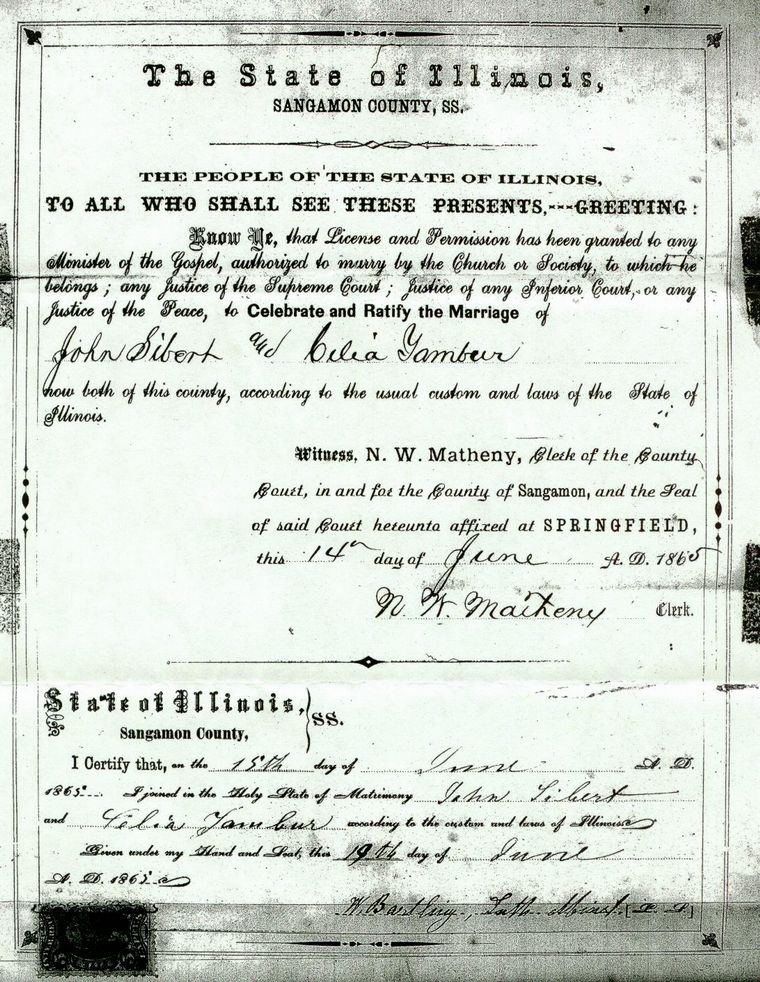 The State of Illinois,
SANGAMON COUNTY, SS.
THE PEOPLE OF THE STATE OF ILLINOIS,
TO ALL WHO SHALL SEE THESE PRESENTS,---GREETING:
Know Ye, that License and Permission has been granted to any
Minister of the Gospel, authorized to marry by the Church or Society, to which he
belongs; any Justice of the Supreme Court; Justice of any Inferior Court, or any
Justice of the Peace, to Celebrate and Ratify the Marriage of
John Sibert and Celia Yambur
now both of this county, according to the usual custom and laws of the State of
Illinois.
Witness, N. W. Matheny, Clerk of the County
Court, in and for the County of Sangamon, and the Seal
of said Court hereunto affixed at SPRINGFIELD,
this 14th day of June A. D. 1865
N. W. Matheny Clerk.
State of Illinois, SS.
Sangamon County,
I Certify that, on the 15th day of June A. D.
1865 I joined in the Holy State of Matrimony John Sibert
and Celia Yambur according to the custom and laws of Illinois
Given under my Hand and Seal, this 19th day of June
A. D. 1865
Luth. Minist. [L. S.]